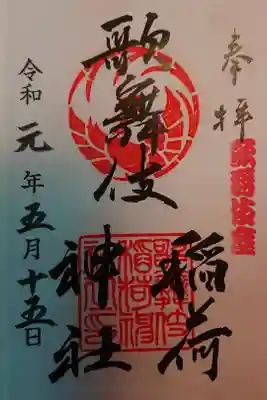 奉拝
歌舞伎座
歌舞伎
稲荷
神社
令和元年五月十五日